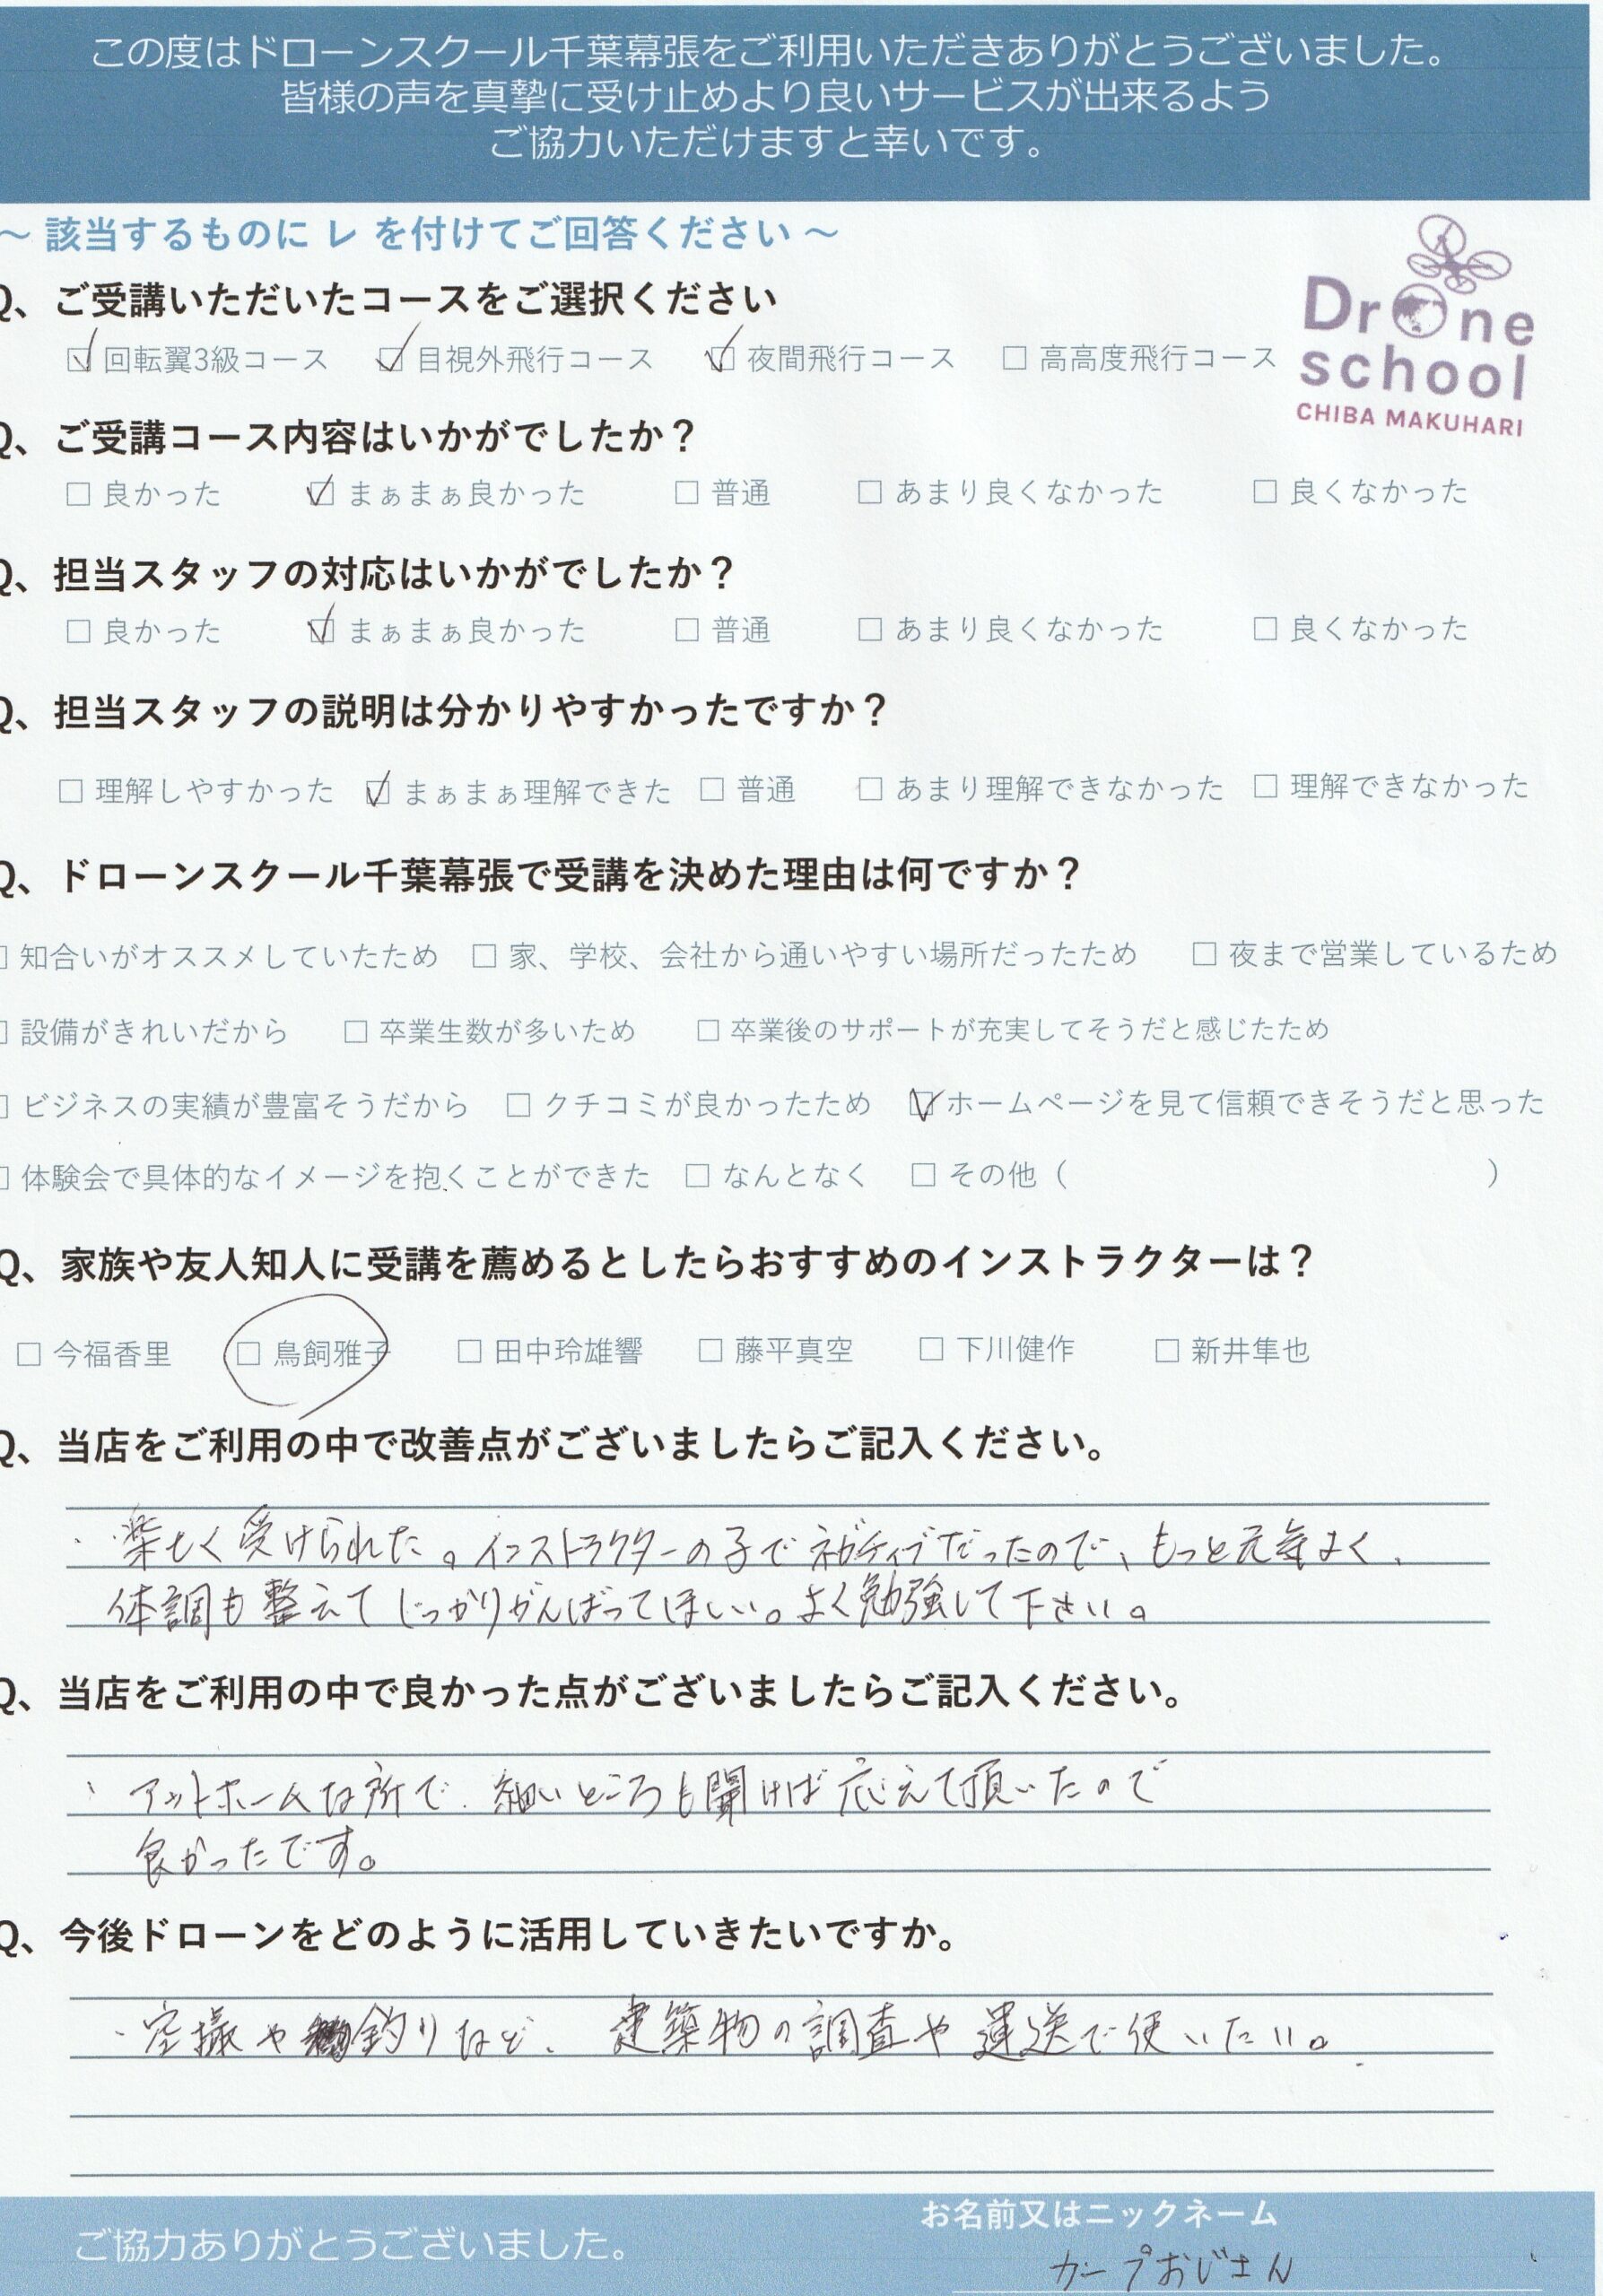 この度はドローンスクール千葉幕張をご利用いただきありがとうございました。
皆様の声を真摯に受け止めより良いサービスが出来るよう
ご協力いただけますと幸いです。
～ 該当するものに レ を付けてご回答ください ～
Drone
school
CHIBA MAKUHARI
Q、ご受講いただいたコースをご選択ください
☑ 回転翼3級コース ☑ 目視外飛行コース ☑ 夜間飛行コース □ 高高度飛行コース
Q、ご受講コース内容はいかがでしたか？
□ 良かった ☑ まぁまぁ良かった □ 普通 □ あまり良くなかった □ 良くなかった
Q、担当スタッフの対応はいかがでしたか？
□ 良かった ☑ まぁまぁ良かった □ 普通 □ あまり良くなかった □ 良くなかった
Q、担当スタッフの説明は分かりやすかったですか？
□ 理解しやすかった ☑ まぁまぁ理解できた □ 普通 □ あまり理解できなかった □ 理解できなかった
Q、ドローンスクール千葉幕張で受講を決めた理由は何ですか？
□ 知合いがオススメしていたため □ 家、学校、会社から通いやすい場所だったため □ 夜まで営業しているため
□ 設備がきれいだから □ 卒業生数が多いため □ 卒業後のサポートが充実してそうだと感じたため
□ ビジネスの実績が豊富そうだから □ クチコミが良かったため ☑ ホームページを見て信頼できそうだと思った
□ 体験会で具体的なイメージを抱くことができた □ なんとなく □ その他（ ）
Q、家族や友人知人に受講を薦めるとしたらおすすめのインストラクターは？
□ 今福香里 □ 鳥飼雅子 □ 田中玲雄響 □ 藤平真空 □ 下川健作 □ 新井隼也
Q、当店をご利用の中で改善点がございましたらご記入ください。
・楽しく受けられた。インストラクターの子でネガティブだったので、もっと元気よく、
体調も整えてしっかりがんばってほしい。よく勉強して下さい。
Q、当店をご利用の中で良かった点がございましたらご記入ください。
・アットホームな所で、細いところも聞けば応えて頂いたので
良かったです。
Q、今後ドローンをどのように活用していきたいですか。
・空撮や釣りなど、建築物の調査や運送で使いたい。
ご協力ありがとうございました。
お名前又はニックネーム
カープおじさん